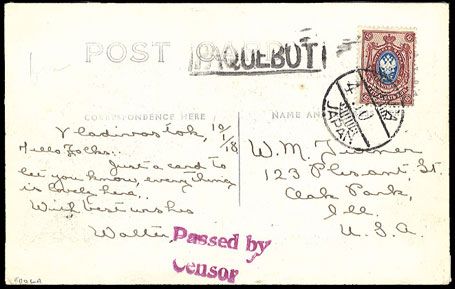 POST
PAQUEBOT
CORRESPONDENCE HERE
NAME AN
Vladivostok,
10/1/18
Hello Folks:.
Just a card to
let you know, everything
is lovely here.
With best wishes
Walter
W. M. Turner
123 Plesant, St.
Oak Park,
Ill.
U. S. A.
JAPAN
Passed by
Censor